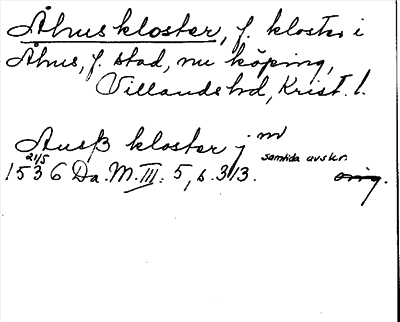 Åhus kloster, f. kloster i
Åhus, f. stad, nu köping,
Villands hd, Krist. l.
Ausß kloster j m
samtida avskr.
21/5
1536 Da. M. III: 5, s. 313. orig.